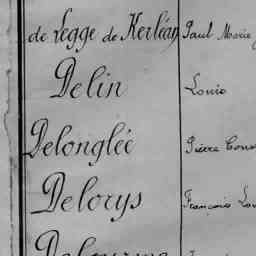 de Legge de Kerléan Paul Marie
Delin Louis
Delonglée Pierre
Delorys François